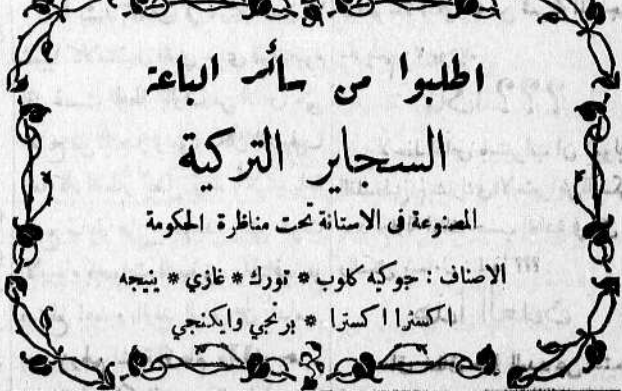 اطلبوا من سائر الباعة
السجاير التركية
المصنوعة في الاستانة تحت مناظرة الحكومة
الاصناف : جوكيه كلوب * تورك * غازي * ينيجه
اكسترا اكسترا * برنجي وايكنجي